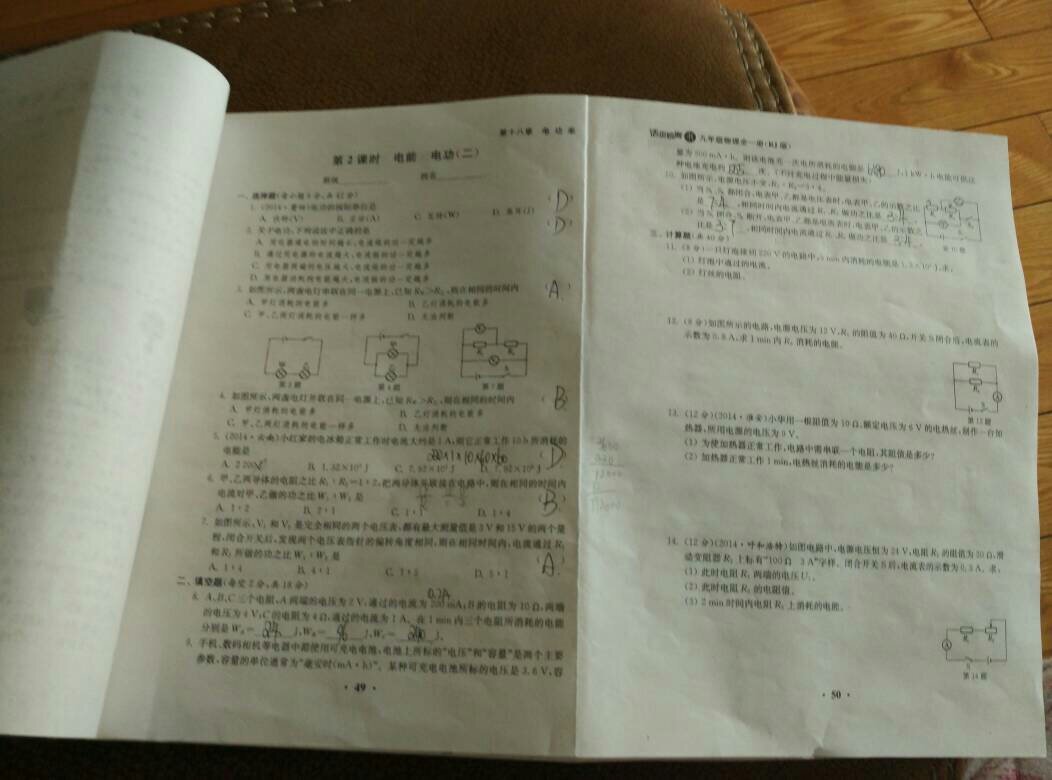 第十八章 电功率
第2课时 电能 电功(二)
班级 姓名
一、选择题(每小题6分,共42分)
1. (2014·
A. 伏特(V) B. 安培(A) C. 瓦特(W) D. 焦耳(J) (D)
2. 关于电功,下列说法中正确的是 (D)
A. 用电器通电的时间越长,电流做的功一定越多
B. 通过用电器的电流越大,电流做的功一定越多
C. 用电器两端的电压越大,电流做的功一定越多
D. 用电器消耗的电能越大,电流做的功一定越多
3. 如图所示,两盏电灯串联在同一电源上,已知R甲>R乙,则在相同的时间内 (A)
A. 甲灯消耗的电能多 B. 乙灯消耗的电能多
C. 甲、乙两灯消耗的电能一样多 D. 无法判断
甲
第3题 第4题 第7题
4. 如图所示,两盏电灯并联在同一电源上,已知R甲>R乙,则在相同的时间内 (B)
A. 甲灯消耗的电能多 B. 乙灯消耗的电能多
C. 甲、乙两灯消耗的电能一样多 D. 无法判断
5. (2014·云南)小红家的电冰箱正常工作时电流大约是1A,则它正常工作10h所消耗的
电能是 220×1×10×60×60 (D)
A. 2200J B. 1.32×10⁵J C. 7.92×10⁵J D. 7.92×10⁶J
6. 甲、乙两导体的电阻之比R₁:R₂=1:2,把两导体并联接在电路中,则在相同的时间内
电流对甲、乙做的功之比W₁:W₂是 (B)
A. 1:2 B. 2:1 C. 1:1 D. 1:4
7. 如图所示,V₁和V₂是完全相同的两个电压表,都有最大测量值是3V和15V的两个量
程,闭合开关后,发现两个电压表指针的偏转角度相同,则在相同时间内,电流通过R₁
和R₂所做的功之比W₁:W₂是 (A)
A. 1:4 B. 4:1 C. 1:5 D. 5:1
二、填空题(每空2分,共18分)
0.2A
8. A、B、C三个电阻,A两端的电压为2V,通过的电流为200mA;B的电阻为10Ω,两端
的电压为4V;C的电阻为4Ω,通过的电流为1A。在1min内三个电阻所消耗的电能
分别是W_A=24J,W_B=96J,W_C=240J。
9. 手机、数码相机等电器中都使用可充电电池,电池上所标的“电压”和“容量”是两个主要
参数,容量的单位通常为“毫安时(mA·h)”。某种可充电电池所标的电压是3.6V,容
· 49 ·
九年级物理全一册(RJ版)
量为500mA·h。则该电池充一次电所消耗的电能是6480J,1kW·h电能可供这
种电池充电约555次。(不计充电过程中能量损失)
10. 如图所示,电源电压不变,R₁:R₂=3:4。
(1) 当S₁、S₂都闭合,电表甲、乙都是电压表时,电表甲、乙的示数之比
是7:4,相同时间内电流通过R₁、R₂做功之比是3:4。
(2) 当S₁闭合,S₂断开,电表甲、乙都是电流表时,电表甲、乙的示数之
比是 ,相同时间内电流通过R₁、R₂做功之比是 。
第10题
三、计算题(共40分)
11. (8分)一只灯泡接到220V的电路中,5min内消耗的电能是1.2×10⁴J,求:
(1) 灯泡中通过的电流。
(2) 灯丝的电阻。
12. (8分)如图所示的电路,电源电压为12V,R₁的阻值为40Ω,开关S闭合后,电流表的
示数为0.8A,求1min内R₂消耗的电能。
第12题
13. (12分)(2014·淮安)小华用一根阻值为10Ω,额定电压为6V的电热丝,制作一台加
热器,所用电源的电压为9V。
(1) 为使加热器正常工作,电路中需串联一个电阻,其阻值是多少?
(2) 加热器正常工作1min,电热丝消耗的电能是多少?
14. (12分)(2014·呼和浩特)如图电路中,电源电压恒为24V,电阻R₁的阻值为30Ω,滑
动变阻器R₂上标有“100Ω 3A”字样。闭合开关S后,电流表的示数为0.3A。求:
(1) 此时电阻R₁两端的电压U₁。
(2) 此时电阻R₂的电阻值。
(3) 2min时间内电阻R₂上消耗的电能。
第14题
· 50 ·